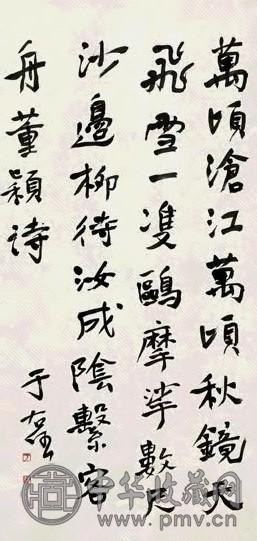 萬頃滄江萬頃秋鏡天
飛雪一雙鷗摩挲數尺
沙邊柳待汝成陰繫客
舟董穎詩
于右任
中华收藏网
www.pmv.cn